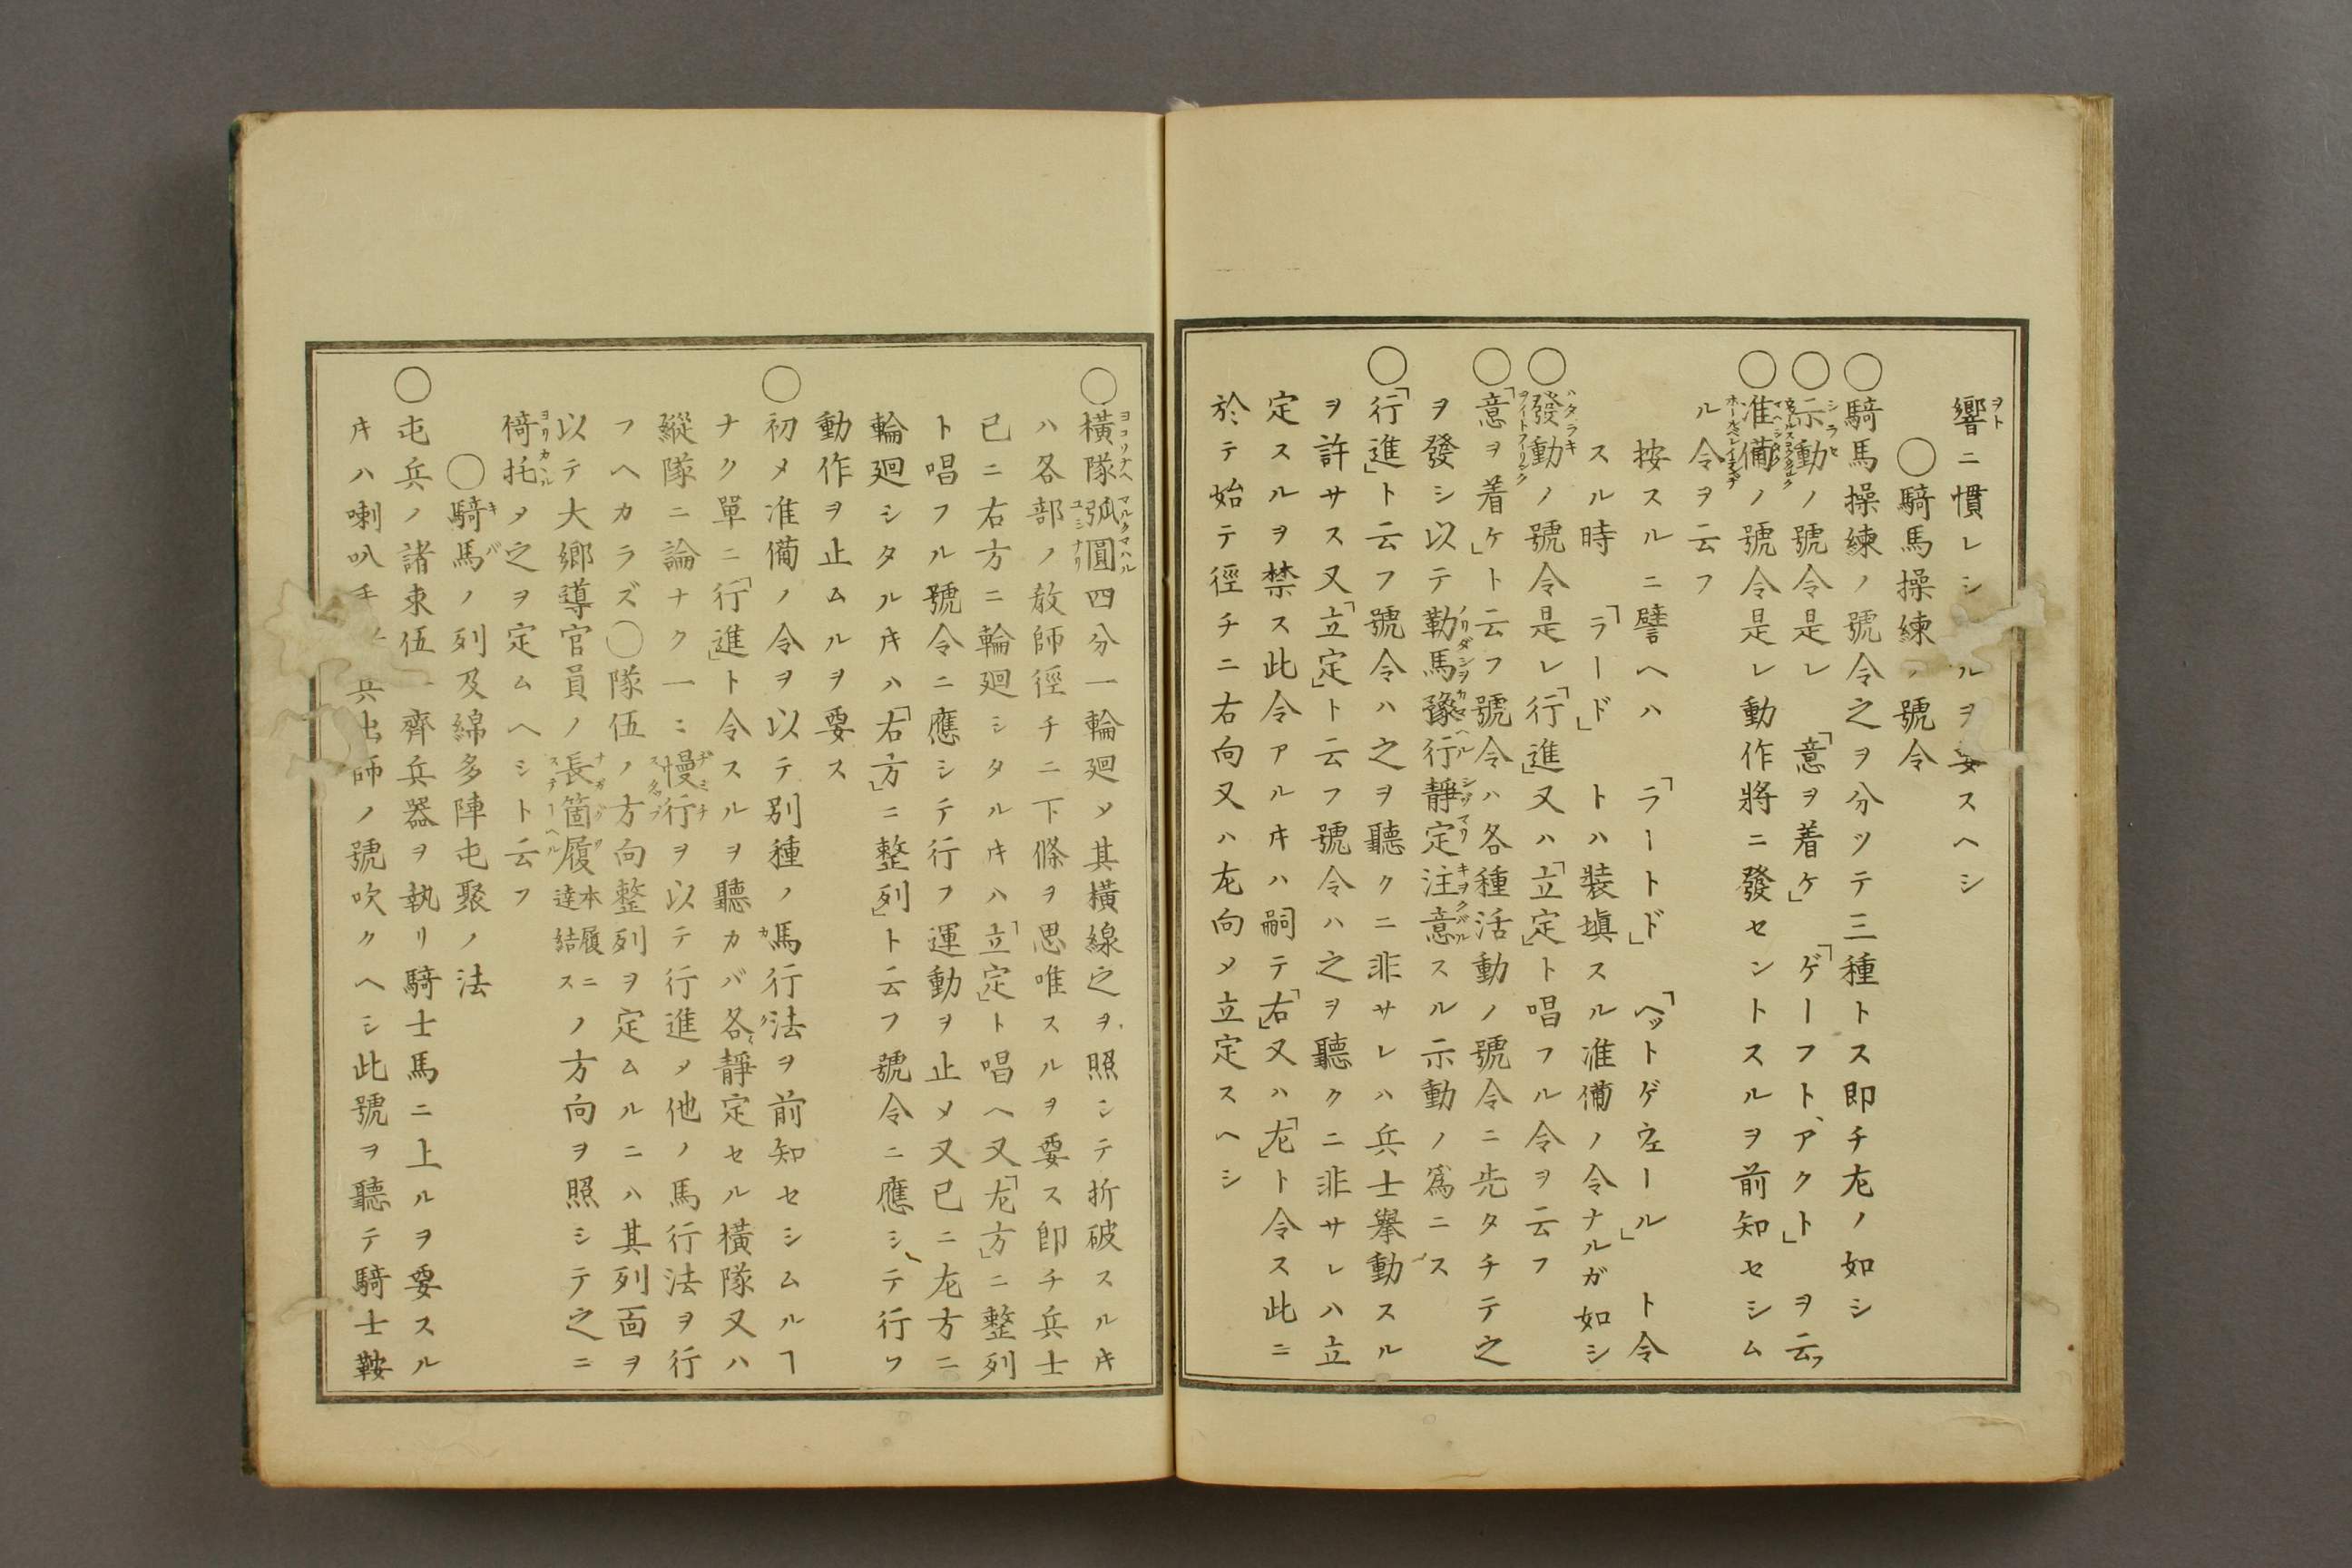 響ニ慣レシ ルヲ要スヘシ
〇騎馬操練ノ號令
〇騎馬操練ノ號令之ヲ分ツテ三種トス即チ左ノ如シ
〇示動ノ號令是レ「意ヲ着ケ」「ゲーフト、アクト」ヲ云フ
〇准備ノ號令是レ動作將ニ發セントスルヲ前知セシム
ル令ヲ云フ
按スルニ譬ヘハ「ラートド」「ヘットゲウェール」ト令
スル時「ラード」トハ装塡スル准備ノ令ナルガ如シ
〇發動ノ號令是レ「行進」又ハ「立定」ト唱フル令ヲ云フ
〇「意ヲ着ケ」ト云フ號令ハ各種活動ノ號令ニ先タチテ之
ヲ發シ以テ勒馬豫行靜定注意スル示動ノ爲ニス
〇「行進」ト云フ號令ハ之ヲ聽クニ非サレハ兵士擧動スル
ヲ許サス又「立定」ト云フ號令ハ之ヲ聽クニ非サレハ立
定スルヲ禁ス此令アルキハ嗣テ「右」又ハ「左」ト令ス此ニ
於テ始テ徑チニ右向又ハ左向メ立定スヘシ
〇横隊弧圓四分一輪廻メ其横線之ヲ照シテ折破スルキ
ハ各部ノ敎師徑チニ下條ヲ思唯スルヲ要ス卽チ兵士
已ニ右方ニ輪廻シタルキハ「立定」ト唱ヘ又「左方」ニ整列
ト唱フル號令ニ應シテ行フ運動ヲ止メ又已ニ左方ニ
輪廻シタルキハ「右方」ニ整列」ト云フ號令ニ應シテ行フ
動作ヲ止ムルヲ要ス
〇初メ准備ノ令ヲ以テ別種ノ馬行法ヲ前知セシムルヿ
ナク單ニ「行進」ト令スルヲ聽カバ各靜定セル横隊又ハ
縱隊ニ論ナク一ニ慢行ヲ以テ行進メ他ノ馬行法ヲ行
フヘカラズ〇隊伍ノ方向整列ヲ定ムルニハ其列面ヲ
以テ大鄕導官員ノ長箇履本履ニ達結スノ方向ヲ照シテ之ニ
倚托メ之ヲ定ムヘシト云フ
〇騎馬ノ列及綿多陣屯聚ノ法
〇屯兵ノ諸束伍一齊兵器ヲ執リ騎士馬ニ上ルヲ要スル
キハ喇叭 兵出師ノ號吹クヘシ此號ヲ聽テ騎士鞍